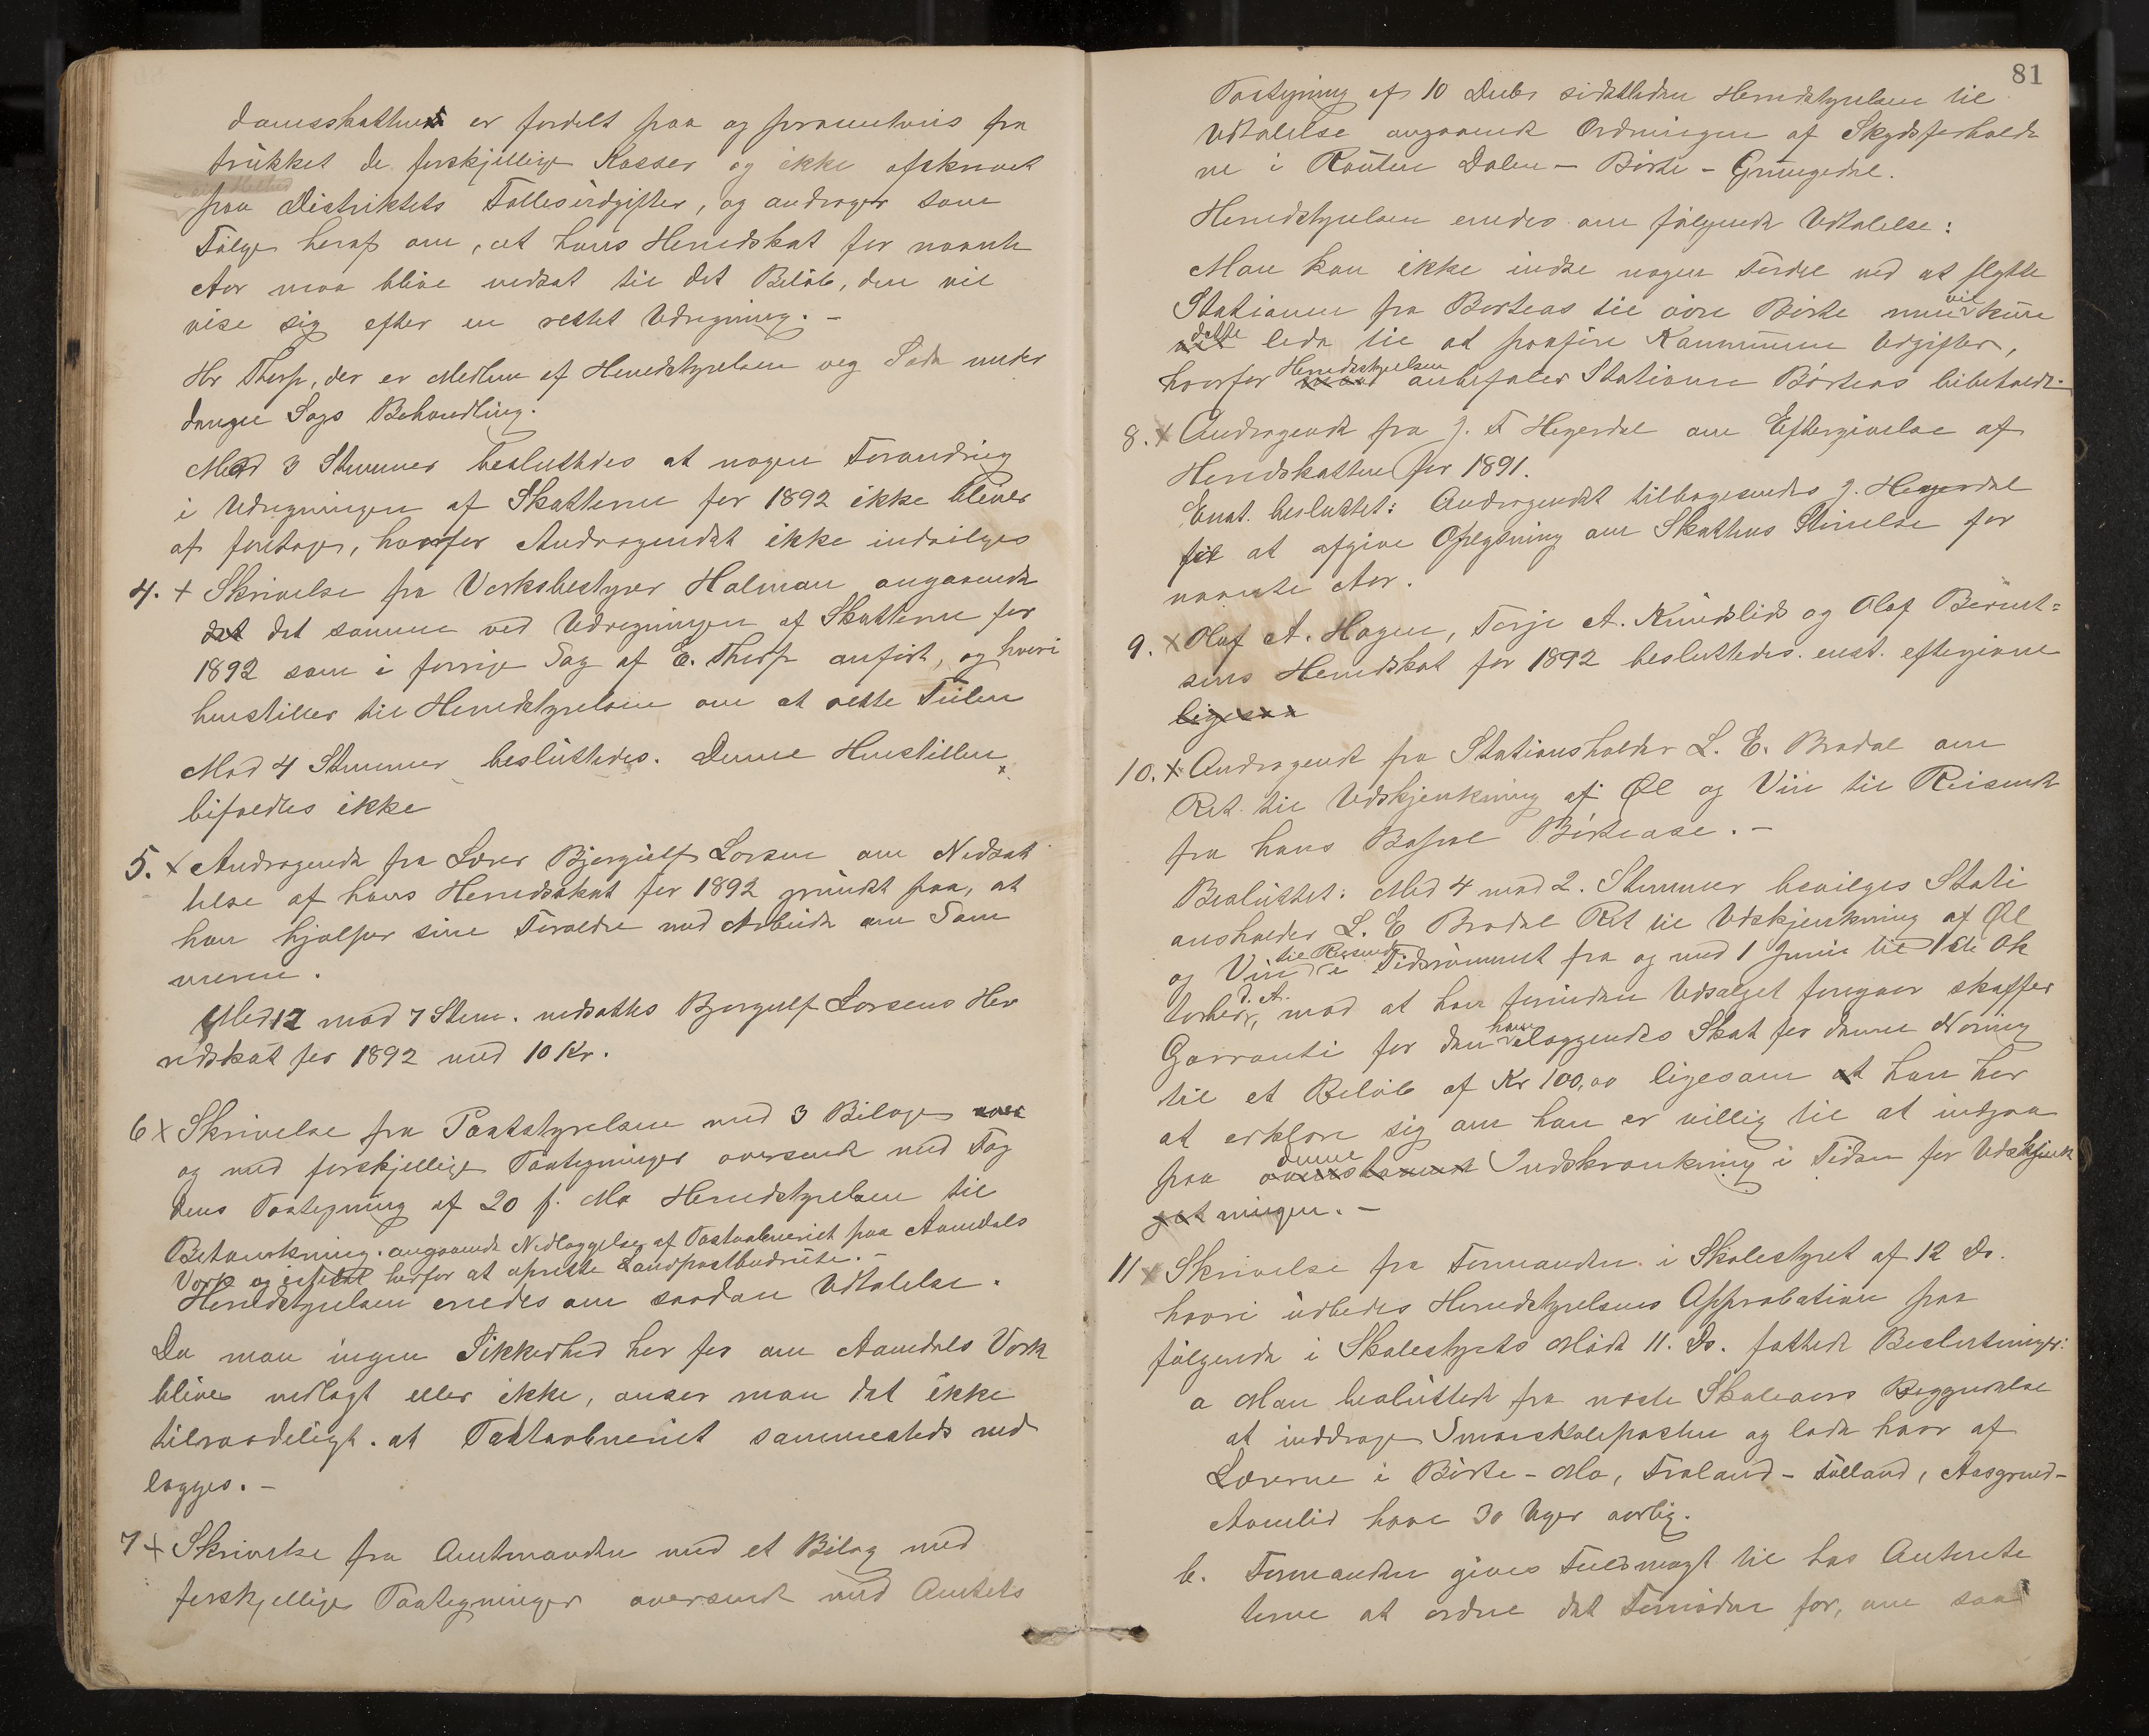 damsskatten er fordelt paa og procentviis fra
trukket de forskjellige Kasser og ikke afskrevet
paa Distriktets Fællesudgifter, og andrager som
Følge heraf om, at hans Herredskat for nævnte
Aar maa blive nedsat til det Beløb, den vil
vise sig efter en rettet Udregning. -
Hr Thorp, der er Medlem af Herredstyrelsen veg Sæde under
denne Sags Behandling.
Mod 3 Stemmer besluttedes at nogen Forandring
i Udregningen af Skatterne for 1892 ikke bliver
at foretage, hvorfor Andragendet ikke indvilges
4. x Skrivelse fra Verksbestyrer Holman angaaende
det det samme ved Udregningen af Skatterne for
1892 som i forrige Sag af E. Thorp anført, og hvori
henstilles til Herredstyrelsen om at rette Feilen
Mod 4 Stemmer besluttedes. Denne Henstillen
bifaldtes ikke
5. x Andragende fra Lærer Bjorgulf Larsen om Nedsæt
telse af hans Herredsskat for 1892 grundet paa, at
han hjælper sine Forældre med Arbeide om Som
meren.
Med 12 mod 7 Stem. nedsattes Bjorgulf Larsens Her
redskat for 1892 med 10 Kr.
6 x Skrivelse fra Poststyrelsen med 3 Bilage
og med forskjellige Paategninger oversendt med Fog
dens Paategning af 20 f. M. Herredstyrelsen til
Betænkning. angaaende Nedlæggelse af Postaabneriet paa Aamdals
Værk og istedet herfor at oprette Landpostbudrute. -
Herredstyrelsen enedes om saadan Udtalelse.
Da man ingen Sikkerhed har for om Aamdals Værk
bliver nedlagt eller ikke, anser man det ikke
tilraadeligt. at Postaabneriet sammesteds ned
lægges. -
7 x Skrivelse fra Amtmanden med et Bilag med
forskjellige Paategninger oversendt med Amtets
81
Paategning af 10 Decbr sidstleden Herredstyrelsen til
Udtalelse angaaende Ordningen af Skydsforholde
ne i Routen Dalen - Børte - Grungedal.
Herredstyrelsen enedes om følgende Udtalelse:
Man kan ikke indse nogen Fordel ved at flytte
Stationen fra Børteas til øvre Børte men vil kun
dette lede til at paaføre Kommunen Udgifter,
hvorfor Herredsstyrelsen anbefaler Stationen Børteas bibeholdt.
8. x Andragende fra J. T Hegerdal om Eftergivelse af
Herredskatten for 1891.
Enst. besluttet: Andragendet tilbagesendes J. Hegerdal
for at afgive Oplysning om Skattens Størrelse for
nævnte Aar.
9. x Olaf A. Hagen, Terje A. Knudslid og Olaf Berint=
sens Herredskat for 1892 besluttedes enst. eftergivne
ligesaa
10. x Andragende fra Stationsholder L. E. Brodal om
Ret til Udskjænkning af Øl og Vin til Reisende
fra hans Bopæl Børteose. -
Besluttet: Med 4 mod 2. Stemmer bevilges Stati
onsholder L. E Brodal Ret til Udskjænkning af Øl
og Vin til Reisende i Tidsrummet fra og med 1 Juni til 1ste Ok
tober d. A., mod at han forinden Udsalget foregaar skaffer
Garranti for den ham ilæggendes Skat for denne Næring
til et Beløb af Kr 100,00 ligesom at han har
at erklære sig om han er villig til at indgaa
paa denne Indskrænkning i Tiden for Udskjænk
ningen. -
11 x Skrivelse fra Formanden i Skolestyret af 12 Ds.
hvori udbedes Herredstyrelsens Approbation paa
følgende i Skolestyrets Møde 11. Ds. fattede Beslutninger:
a Man besluttede fra næste Skoleaars Begyndelse
at inddrage Smaaskoleposten og lade hver af
Lærerne i Børte - Mo, Træland - Følland, Aasgrend -
Aamlid have 30 Uger aarlig.
b. Formanden gives Fuldmagt til hos Autorite
terne at ordne det Fornødne for, om saa